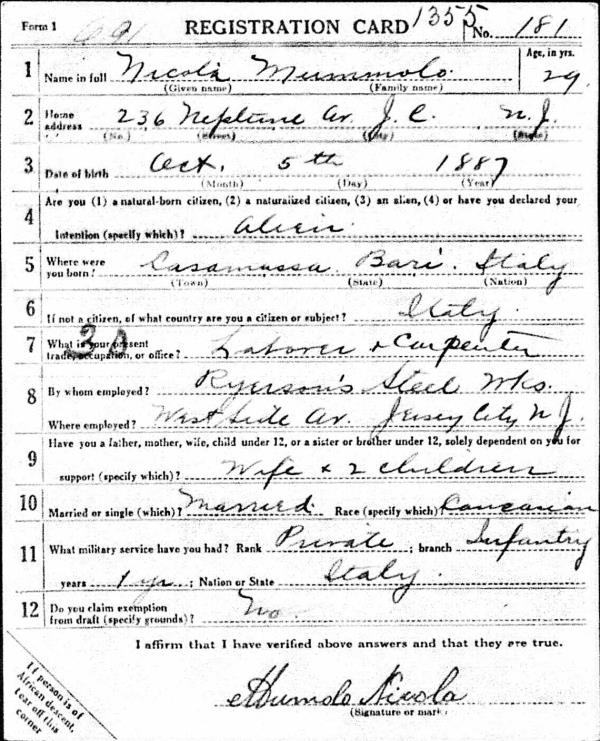 Form 1 REGISTRATION CARD 1355 No. 181
1 Name in full Nicola Mummolo Age, in yrs. 29
(Given name) (Family name)
2 Home address 236 Neptune Av. J. C. N. J.
(No.) (Street) (City) (State)
3 Date of birth Oct. 5th 1887
(Month) (Day) (Year)
4 Are you (1) a natural-born citizen, (2) a naturalized citizen, (3) an alien, (4) or have you declared your
intention (specify which)? Alien
5 Where were you born? Casamassa Bari. Italy
(Town) (State) (Nation)
6 If not a citizen, of what country are you a citizen or subject? Italy.
7 What is your present trade, occupation, or office? Laborer + Carpenter
8 By whom employed? Ryerson's Steel Wks.
Where employed? West Side Av. Jersey City N J.
9 Have you a father, mother, wife, child under 12, or a sister or brother under 12, solely dependent on you for
support (specify which)? Wife + 2 children
10 Married or single (which)? Married Race (specify which) Caucasian
11 What military service have you had? Rank Private ; branch Infantry
years 1 yr ; Nation or State Italy.
12 Do you claim exemption from draft (specify grounds)? No
I affirm that I have verified above answers and that they are true.
Nicola
(Signature or mark)
If person is of
African descent,
tear off this
corner